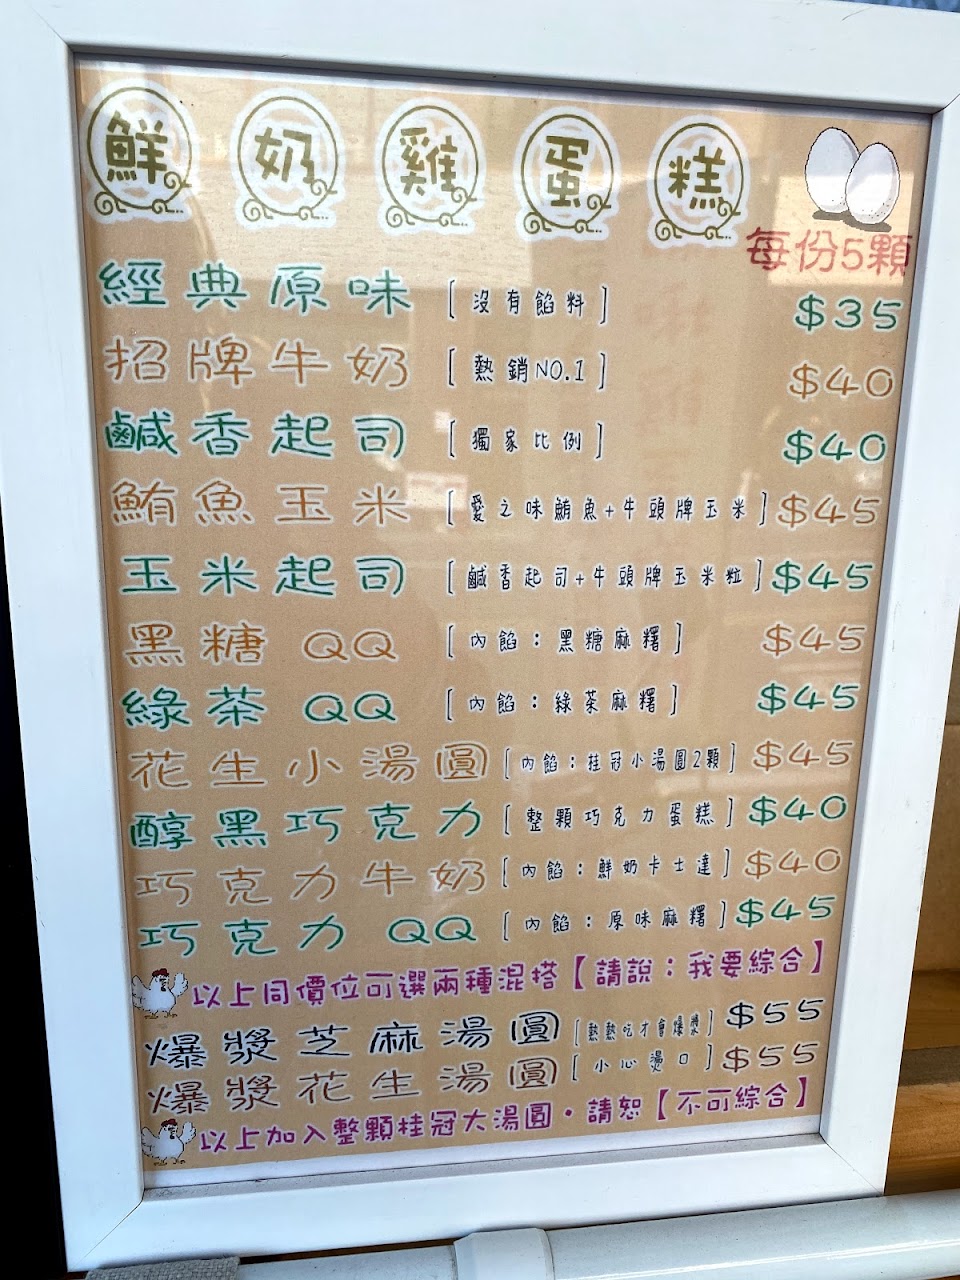 鮮奶雞蛋糕
每份5顆
經典原味 [沒有餡料] $35
招牌牛奶 [熱銷NO.1] $40
鹹香起司 [獨家比例] $40
鮪魚玉米 [愛之味鮪魚+牛頭牌玉米] $45
玉米起司 [鹹香起司+牛頭牌玉米粒] $45
黑糖QQ [內餡：黑糖麻糬] $45
綠茶QQ [內餡：綠茶麻糬] $45
花生小湯圓 [內餡：桂冠小湯圓2顆] $45
醇黑巧克力 [整顆巧克力蛋糕] $40
巧克力牛奶 [內餡：鮮奶卡士達] $40
巧克力QQ [內餡：原味麻糬] $45
以上同價位可選兩種混搭【請說：我要綜合】
爆漿芝麻湯圓 [熱熱吃才會爆漿] $55
爆漿花生湯圓 [小心燙口] $55
以上加入整顆桂冠大湯圓・請恕【不可綜合】